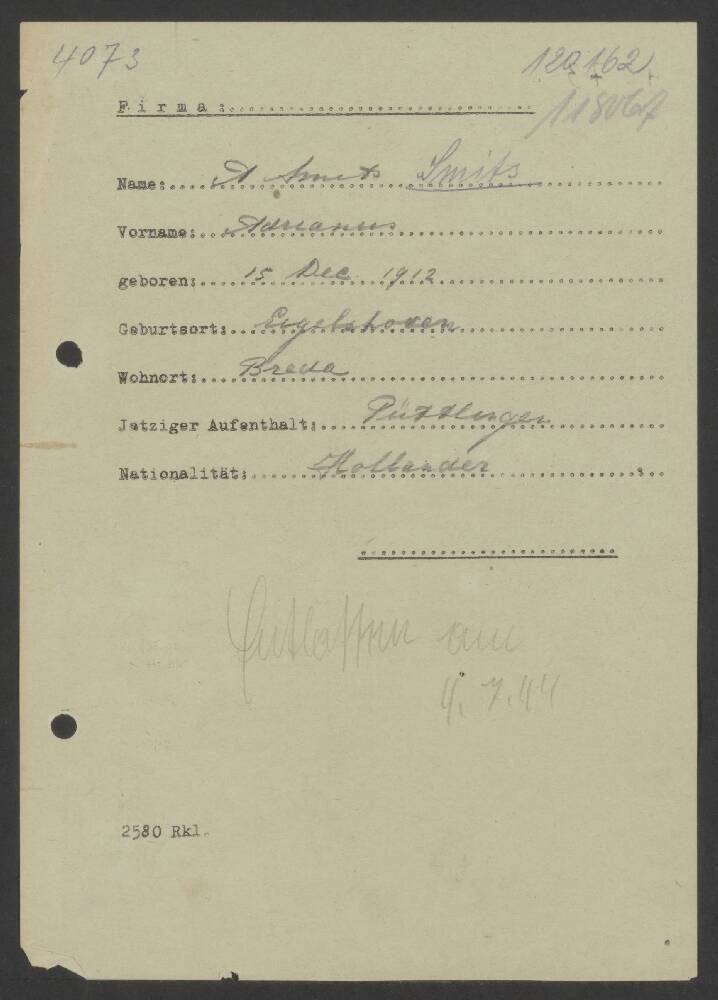 4073
120162
118067
Firma:
Name: A Smits Smits
Vorname: Adrianus
geboren: 15 Dec 1912
Geburtsort: Eygelshoven
Wohnort: Breda
Jetziger Aufenthalt: Püttlingen
Nationalität: Hollander
Entlassen am
4.7.44
2580 Rkl.